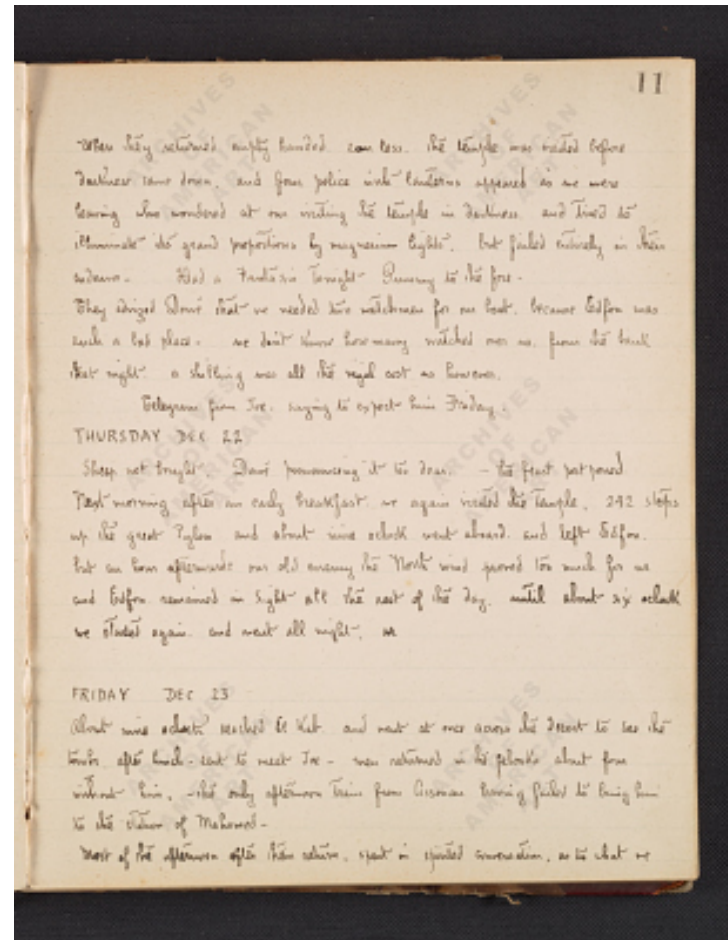 11
When they returned empty handed. The temple was visited before
darkness came down, and four police with lanterns appeared as we were
leaving who wondered at our visiting the temple in darkness and tried to
illuminate its grand proportions by magnesium lights. but failed entirely in their
Had a Fantasia Tonight to the fore -
They advised that we needed two watchmen for our boat, because Edfou was
such a bad place - we don't know how many watched over us, from the bank
that night. a shilling was all the cost us however.
Telegram from Joe. saying to expect him Friday.
THURSDAY DEC 22
Sheep not bought. pronouncing it too dear. - the feast postponed
Next morning after an early breakfast, we again visited the Temple. 242 steps
up the great Pylon and about nine oclock went aboard and left Edfou.
but an hour afterwards our old enemy the North wind proved too much for us
and Edfou remained in sight all the rest of the day. until about six oclock
we started again and went all night.
FRIDAY DEC 23
About nine oclock reached El Kab. and went at once across the desert to see the
tombs. after lunch - sent to meet Joe - men returned in the felucca about four
without him, - the only afternoon train from Assouan having failed to bring him
to the station of
Most of the afternoon after their return, spent in spirited conversation, as to what we
ARCHIVES OF AMERICAN ART